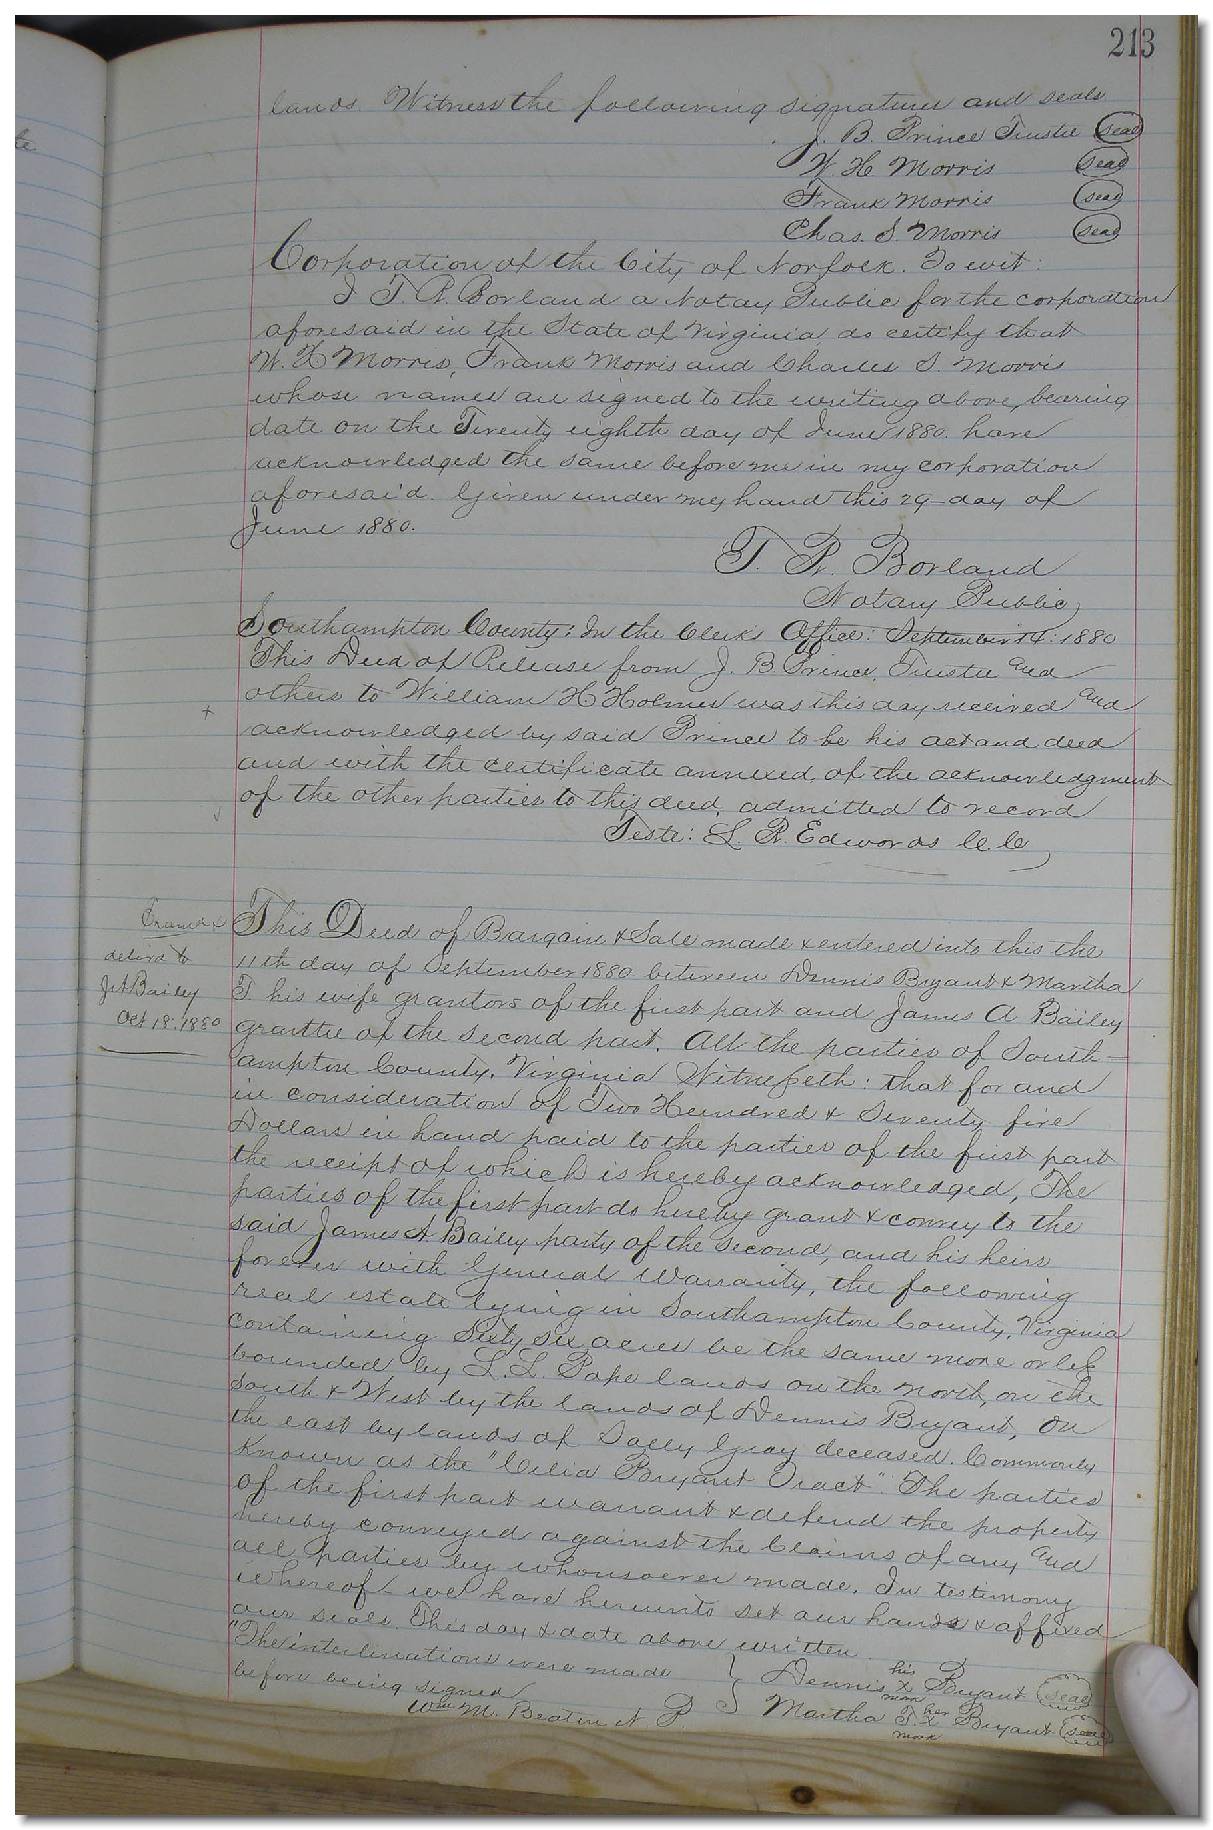 213
lands. Witness the following signatures and seals
J. B. Prince Trustee seal
W. H Morris seal
Frank Morris seal
Chas. S. Morris seal
Corporation of the City of Norfolk. To wit:
I T. R. Borland a Notay Public for the corporation
aforesaid in the State of Virginia, do certify that
W. H Morris, Frank Morris and Charles S. Morris
whose names are signed to the writing above, bearing
date on the Twenty eighth day of June 1880. have
acknowledged the same before me in my corporation
aforesaid. Given under my hand this 29 day of
June 1880.
T. R. Borland
Notary Public
Southampton County: In the Clerk's Office: September 14: 1880
This Deed of Release from J. B Prince, Trustee and
others to William H Holmes was this day received and
+ acknowledged by said Prince to be his act and deed
and with the certificate annexed, of the acknowledgment
of the other parties to this deed, admitted to record
Teste: L. R. Edwards C. C.
Examd &
delivd to
J. A Bailey
Oct 18: 1880
This Deed of Bargain & Sale made & entered into this the
11th day of September 1880 between Dennis Bryant & Martha
T his wife grantors of the first part and James A Bailey
granttee of the second part. All the parties of South-
ampton County, Virginia Witnesseth: that for and
in consideration of Two Hundred & Seventy five
Dollars in hand paid to the parties of the first part
the receipt of which is hereby acknowledged, The
parties of the first part do hereby grant & convey to the
said James A Bailey party of the second, and his heirs
forever with General Warranty, the following
real estate lying in Southampton County, Virginia
containing Sixty six acres be the same more or less
bounded by L. L. Pope lands on the north, on the
South & West by the lands of Dennis Bryant, on
the east by lands of Gray deceased. Commonly
Known as the "Celia Bryant Tract". The parties
of the first part warrant & defend the property
hereby conveyed against the Claims of any and
all parties by whomsoever made. In testimony
whereof we have hereunto set our hands & affixed
our seals. This day & date above written.
"The interlinations were made
before being signed
Wm M. J P
his
Dennis X Bryant seal
mark
her
Martha T. X Bryant seal
mark